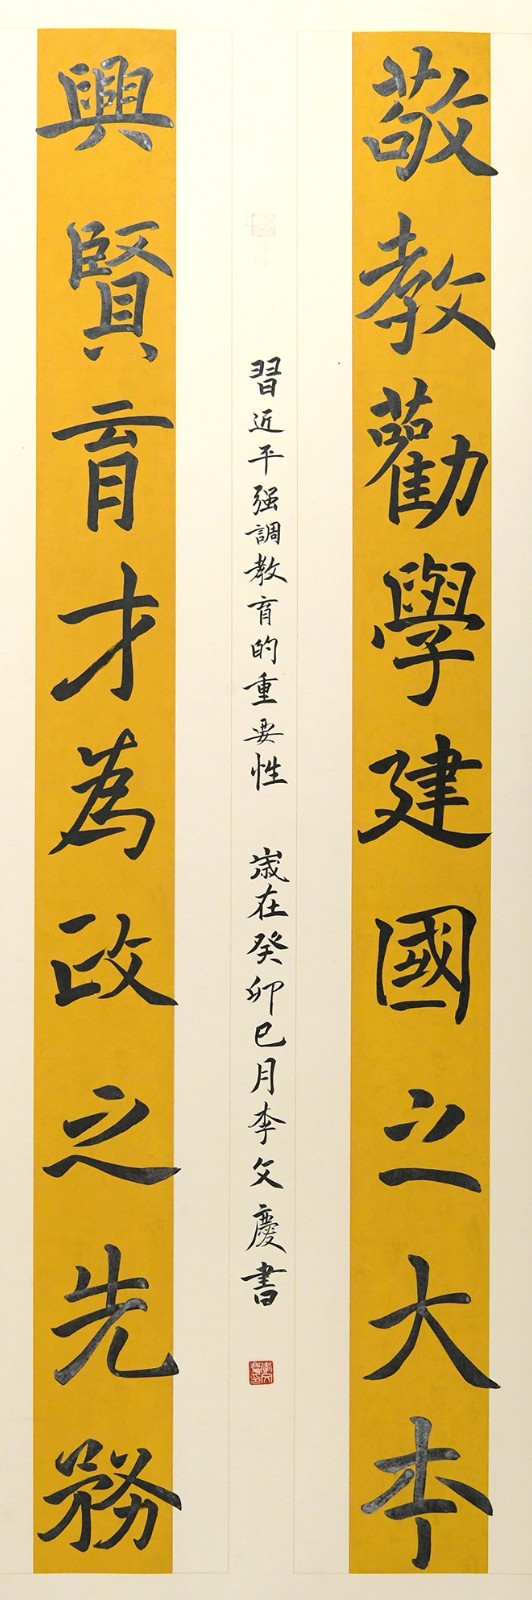 敬教勸學建國之大本
興賢育才為政之先務
習近平强調教育的重要性 歲在癸卯巳月李文慶書